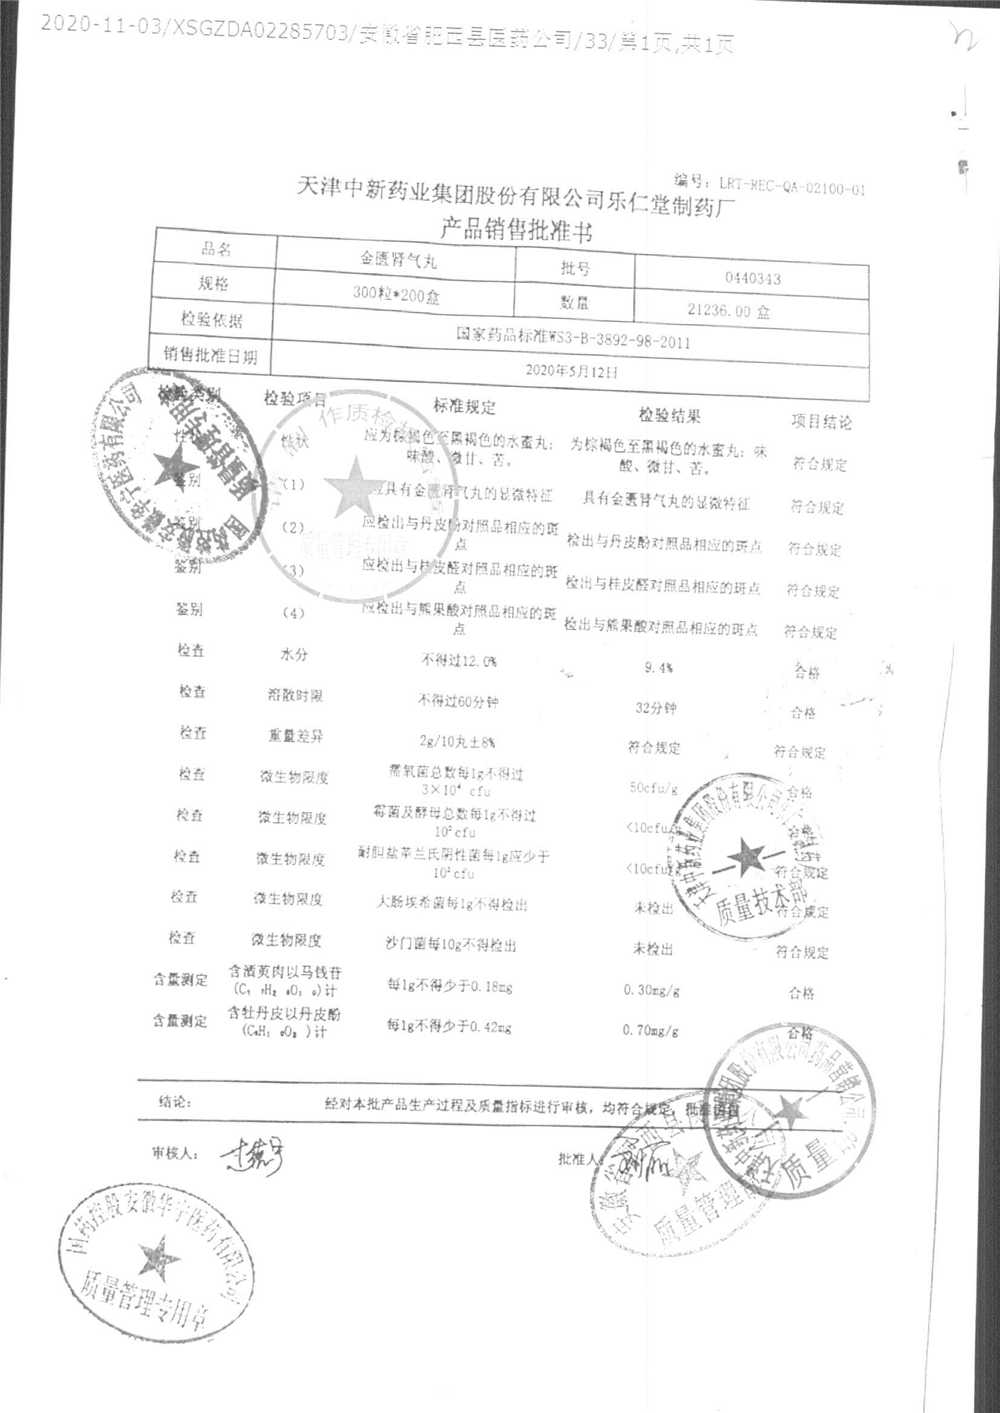 2020-11-03/XSGZDA02285703/安徽省肥西县医药公司/33/第1页,共1页
编号: LRT-REC-QA-02100-01
天津中新药业集团股份有限公司乐仁堂制药厂
产品销售批准书
品名 金匮肾气丸 批号 0440343
规格 300粒*200盒 数量 21236.00 盒
检验依据 国家药品标准WS3-B-3892-98-2011
销售批准日期 2020年5月12日
检验类别 检验项目 标准规定 检验结果 项目结论
性状 性状 应为棕褐色至黑褐色的水蜜丸; 味酸、微甘、苦。 为棕褐色至黑褐色的水蜜丸; 味酸、微甘、苦。 符合规定
鉴别 (1) 应具有金匮肾气丸的显微特征 具有金匮肾气丸的显微特征 符合规定
鉴别 (2) 应检出与丹皮酚对照品相应的斑点 检出与丹皮酚对照品相应的斑点 符合规定
鉴别 (3) 应检出与桂皮醛对照品相应的斑点 检出与桂皮醛对照品相应的斑点 符合规定
鉴别 (4) 应检出与熊果酸对照品相应的斑点 检出与熊果酸对照品相应的斑点 符合规定
检查 水分 不得过12.0% 9.4% 合格
检查 溶散时限 不得过60分钟 32分钟 合格
检查 重量差异 2g/10丸±8% 符合规定 符合规定
检查 微生物限度 需氧菌总数每1g不得过3×10⁴ cfu 50cfu/g 合格
检查 微生物限度 霉菌及酵母总数每1g不得过10²cfu <10cfu/g 合格
检查 微生物限度 耐胆盐革兰氏阴性菌每1g应少于10²cfu <10cfu/g 符合规定
检查 微生物限度 大肠埃希菌每1g不得检出 未检出 符合规定
检查 微生物限度 沙门菌每10g不得检出 未检出 符合规定
含量测定 含酒萸肉以马钱苷 计 每1g不得少于0.18mg 0.30mg/g 合格
含量测定 含牡丹皮以丹皮酚 计 每1g不得少于0.42mg 0.70mg/g 合格
结论: 经对本批产品生产过程及质量指标进行审核, 均符合规定, 批准销售
审核人: 批准人:
国药控股安徽华宁医药有限公司
质量管理专用章
质量管理专用章
天津中新药业集团股份有限公司
质量技术部
质量
安徽省肥西县
质量管理
国药控股安徽华宁医药有限公司
质量管理专用章